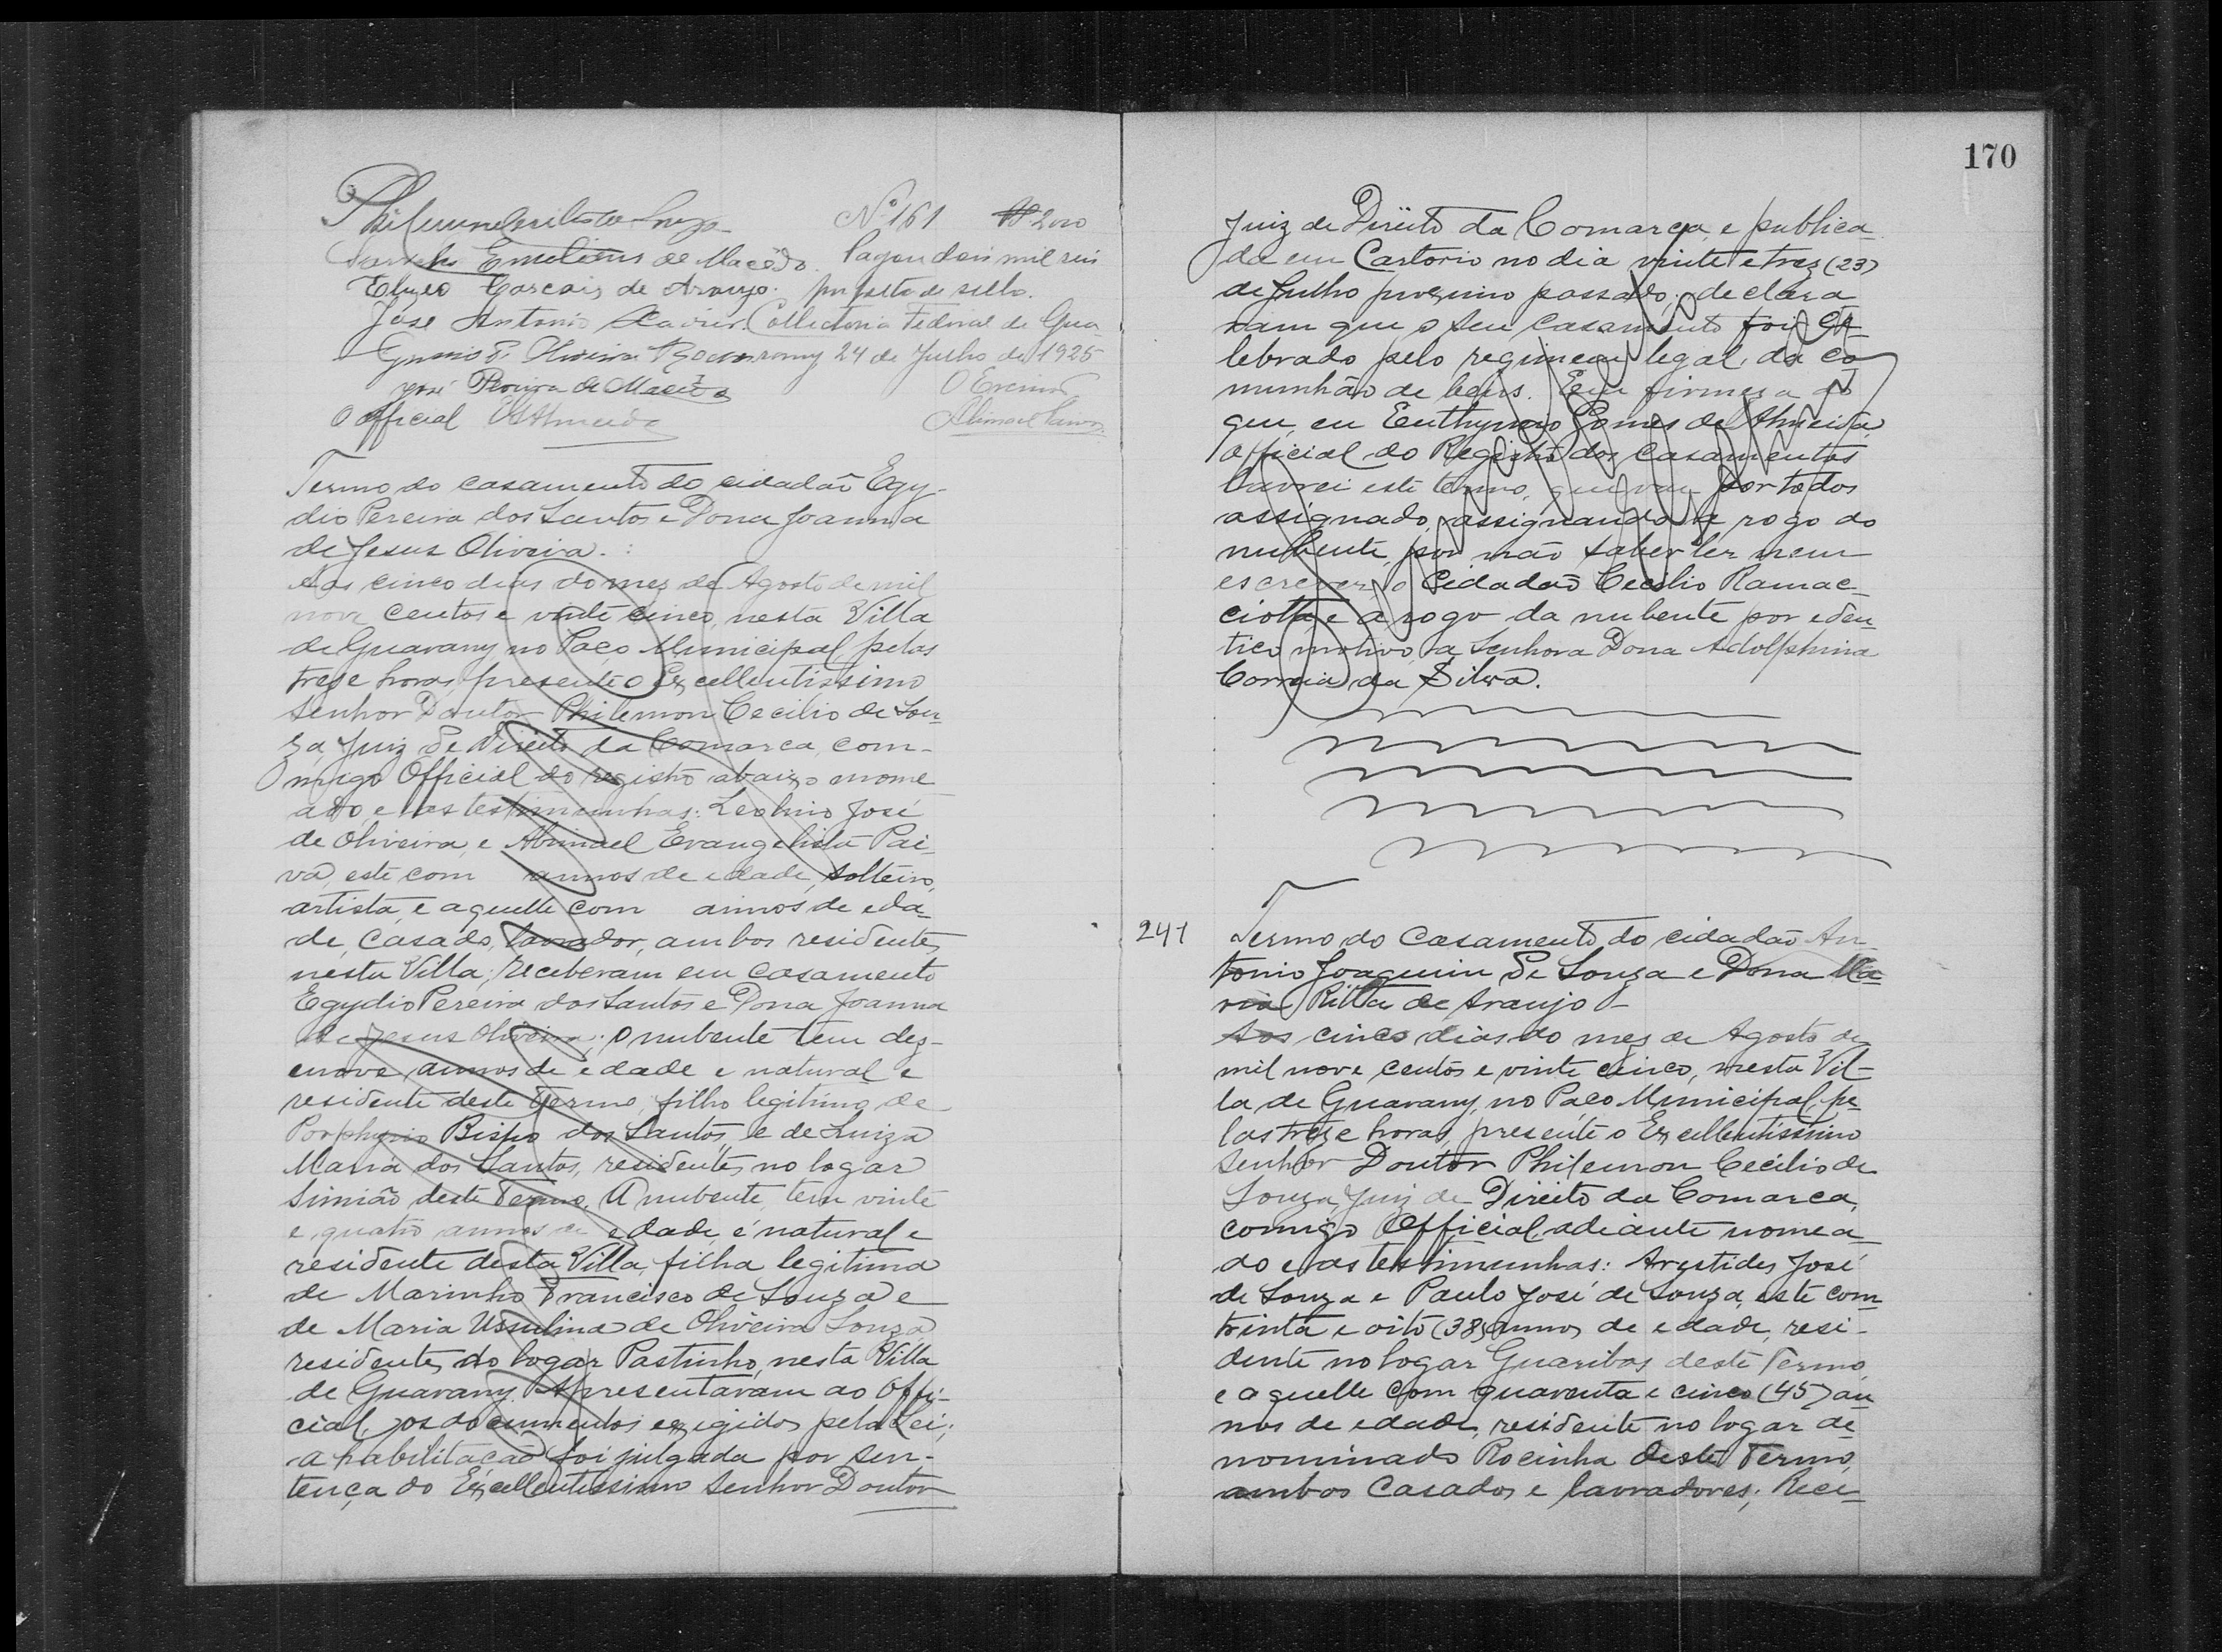 Philemon Cecilio de Souza
Emelianus de Macêdo.
Elyzeo Cascais de Araujo.
José Antonio Xavier
de Oliveira
José Pereira de Macêdo
O Official EGAlmeida
Nº 161 2000
Pagou dois mil reis
por falta de sello.
Collectoria Federal de Gua
rany 24 de Julho de 1925
O Escrivão
Abimael Paiva
Termo do casamento do cidadão Egy-
dio Pereira dos Santos e Dona Joanna
de Jesus Oliveira.
Aos cinco dias do mez de Agosto de mil
nove centos e vinte cinco, nesta Villa
de Guarany no Paço Municipal, pelas
treze horas, presente o Excellentissimo
Senhor Doutor Philemon Cecilio de Sou-
za, Juiz de Direito da Comarca, com-
migo Official do registro abaixo nome
ado, e as testimunhas: Leolino José
de Oliveira, e Abimael Evangelista Pai-
va, este com annos de edade, solteiro,
artista, e aquelle com annos de eda-
de, casado, lavrador, ambos residentes
nesta Villa; receberam em casamento
Egydio Pereira dos Santos e Dona Joanna
de Jesus Oliveira; O nubente tem dez-
enove annos de edade e natural e
residente deste Termo, filho legitimo de
Porphyrio Bispo dos Santos, e de Luiza
Maria dos Santos, residentes no logar
Simião deste Termo. A nubente, tem vinte
e quatro annos de edade, é natural e
residente desta Villa, filha legitima
de Marinho Francisco de Souza e
de Maria Ussulina de Oliveira Souza
residentes no logar Pastinho, nesta Villa
de Guarany. Apresentaram ao Offi-
cial, os documentos exigidos pela Lei;
a habilitação foi julgada por sen-
tença do Excellentissimo Senhor Doutor
170
Juiz de Direito da Comarca, e publica
da em Cartorio no dia vinte e trez (23)
de Julho proximo passado; declara
ram que o seu casamento foi Ce-
lebrado pelo regimem legal, da co
munhão de bens. Em firmeza do
que, eu Euthymio Gomes de Almeida,
Official do Registro dos Casamentos
lavrei este termo, que vae por todos
assignado, assignando a rogo do
nubente, por não saber ler nem
escrever, o Cidadão Cecilio Ramac-
ciotta, e a rogo da nubente por eden-
tico motivo, a Senhora Dona Adolphina
Correia da Silva.
241 Termo do Casamento do cidadão An-
tonio Joaquim de Souza e Dona Ma-
ria Ritta de Araujo-
Aos cinco dias do mez de Agosto de
mil nove centos e vinte cinco, nesta Vil-
la de Guarany, no Paço Municipal, pe-
las treze horas, presente o Excellentissimo
Senhor Doutor Philemon Cecilio de
Souza, Juiz de Direito da Comarca,
comigo Official, adeante nomea
do e as testimunhas: Arestides José
de Souza e Paulo José de Souza, este com
trinta e oito (38) annos de edade, resi-
dente no logar Guaribas deste Termo,
e aquelle com quarenta e cinco (45) an
nos de edade, residente no logar de
nominado Rocinha deste Termo,
ambos Casados e lavradores; Rece-